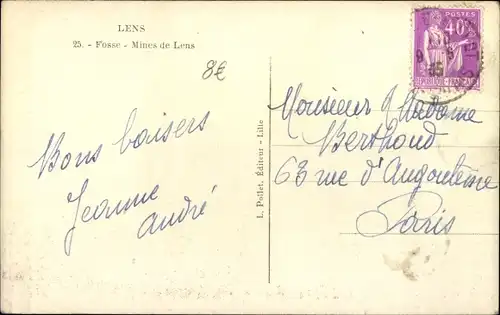 LENS
25. - Fosse - Mines de Lens
8€
Bons baisers
Jeanne
André
L. Pollet, Éditeur - Lille
POSTES
40c
RÉPUBLIQUE FRANÇAISE
Monsieur Madame
Berthoud
63 rue d'Angoulème
Paris